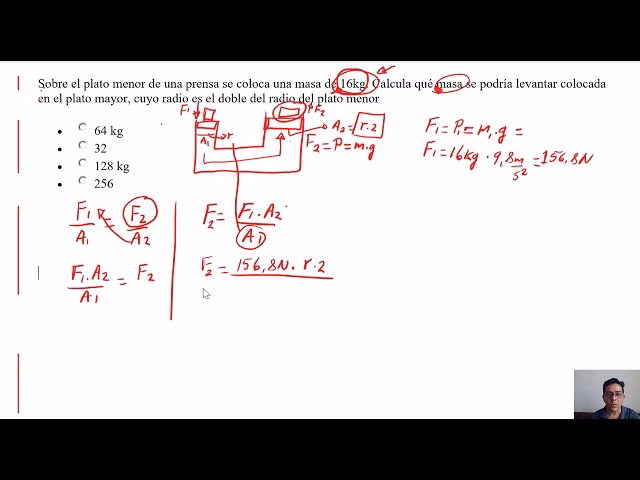 Sobre el plato menor de una prensa se coloca una masa de 16kg. Calcula qué masa se podría levantar colocada
en el plato mayor, cuyo radio es el doble del radio del plato menor
64 kg
32
128 kg
256
F1
F2
A1
r
A2 = r.2
F2 = P = m.g
F1 = P1 = m1.g =
F1 = 16kg . 9,8 m/s² = 156,8N
F1/A1 = F2/A2
F1.A2/A1 = F2
F2 = F1.A2/A1
F2 = 156,8N. r.2